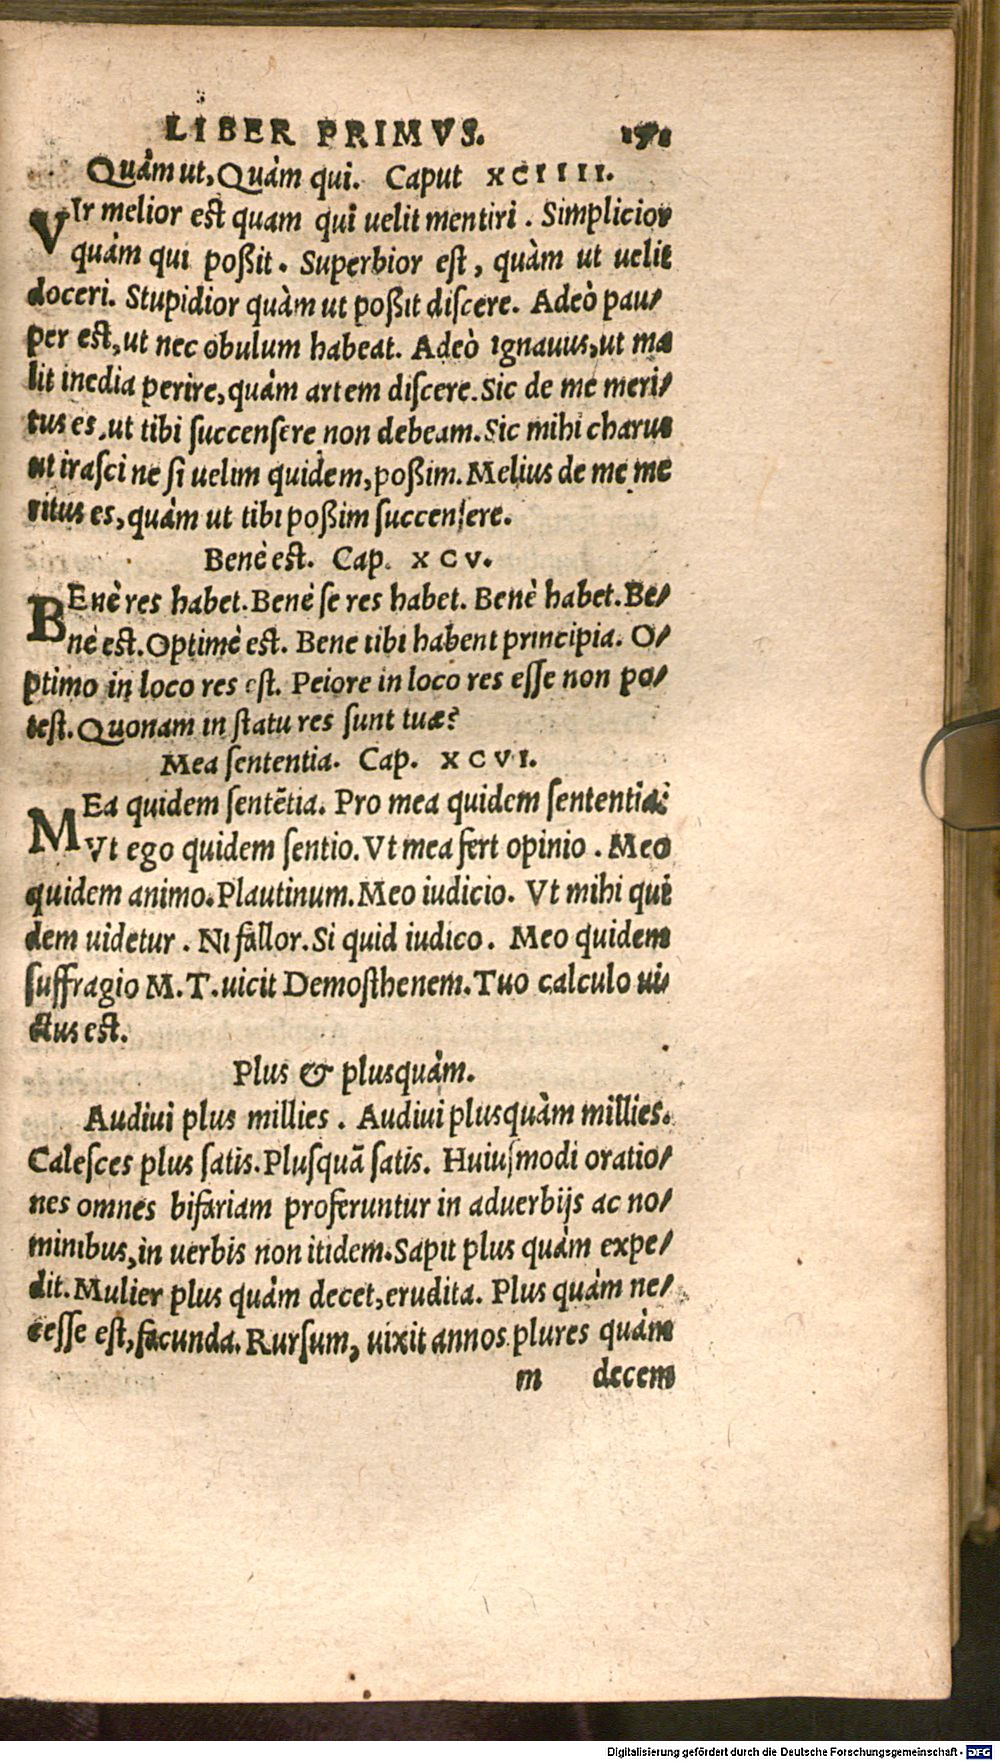 LIBER PRIMVS.
Quàm ut, Quàm qui. Caput XCIIII.
VIr melior est quam qui uelit mentiri. Simplicior
quàm qui poßit. Superbior est, quàm ut uelit
doceri. Stupidior quàm ut poßit discere. Adeò pau-
per est, ut nec obulum habeat. Adeò ignauus, ut ma
lit inedia perire, quàm artem discere. Sic de me meri-
tus es, ut tibi succensere non debeam. Sic mihi charus
ut irasci ne si uelim quidem, poßim. Melius de me me
ritus es, quàm ut tibi poßim succensere.
Benè est. Cap. XCV.
BEnè res habet. Benè se res habet. Benè habet. Be-
nè est. Optimè est. Bene tibi habent principia. O-
ptimo in loco res est. Peiore in loco res esse non po-
test. Quonam in statu res sunt tuæ?
Mea sententia. Cap. XCVI.
MEa quidem sentẽtia. Pro mea quidem sententia.
Vt ego quidem sentio. Vt mea fert opinio. Meo
quidem animo. Plautinum. Meo iudicio. Vt mihi qui
dem uidetur. Ni fallor. Si quid iudico. Meo quidem
suffragio M. T. uicit Demosthenem. Tuo calculo ui-
ctus est.
Plus & plusquàm.
Audiui plus millies. Audiui plusquàm millies.
Calesces plus satis. Plusquã satis. Huiusmodi oratio-
nes omnes bifariam proferuntur in aduerbijs ac no-
minibus, in uerbis non itidem. Sapit plus quàm expe-
dit. Mulier plus quàm decet, erudita. Plus quàm ne-
cesse est, facunda. Rursum, uixit annos plures quàm
m decem
Digitalisierung gefördert durch die Deutsche Forschungsgemeinschaft - DFG